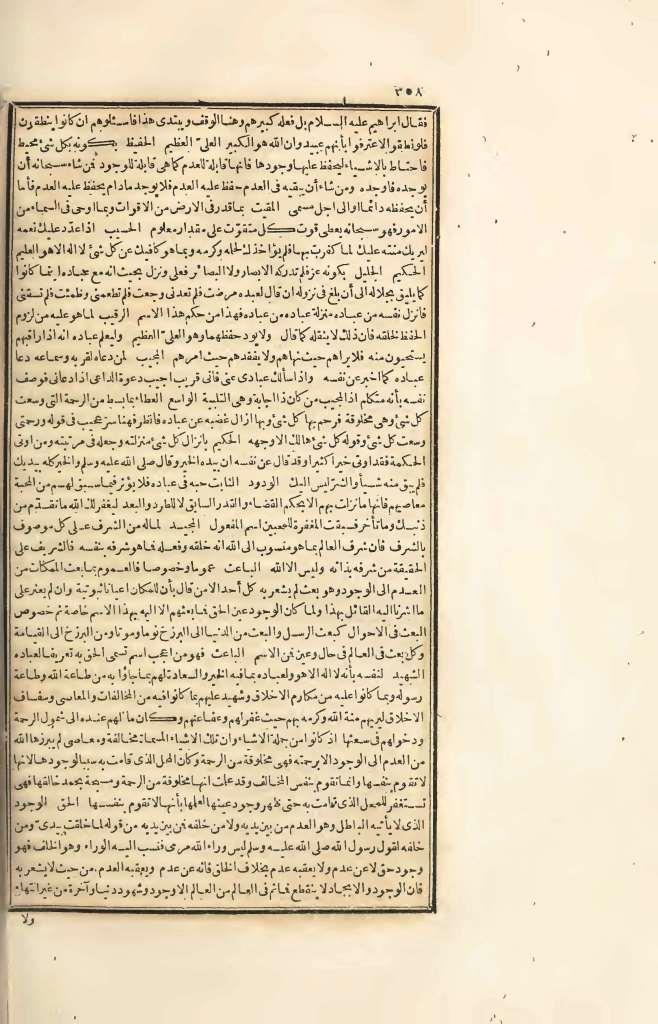 ٣٥٨
فقال ابراهيم عليه السلام بل فعله كبيرهم وهنا الوقف ويبتدى هذا فاسئلوهم ان كانوا ينطقون
فلو نطقوا لاعترفوا بأنهم عبيد وان الله هو الكبير العلى العظيم الحفيظ بكونه بكل شئ محيط
فاحتاط بالاشياء ليحفظ عليها وجودها فانها قابلة للعدم كما هى قابلة للوجود فمن شاء سبحانه أن
يوجده فاوجده ومن شاء أن يبقيه فى العدم حفظ عليه العدم فلا يوجد مادام يحفظ عليه العدم فأما
أن يحفظه دائما أو الى اجل مسمى المقيت بما قدر فى الارض من الاقوات وبما اوحى فى السماء من
الامور فهو سبحانه يعطى قوت كل متقوت على مقدار معلوم الحسيب اذا عدد عليك نعمه
ليريك منته عليك لما كفرت بها فلم يؤاخذك لحلمه وكرمه وبما هو كافيك عن كل شئ لا اله الا هو العليم
الحكيم الجليل بكونه عز فلم تدركه الابصار ولا البصائر فعلى ونزل بحيث انه مع عباده اينما كانوا
كما يليق بجلاله الى أن بلغ فى نزوله ان قال لعبده مرضت فلم تعدنى وجعت فلم تطعمنى وظمئت فلم تسقنى
فانزل نفسه من عباده منزلة عباده من عباده فهذا من حكم هذا الاسم الرقيب لما هو عليه من لزوم
الحفظ لخلقه فان ذلك لا يثقله كما قال ولا يؤد حفظهما وهو العلى العظيم وليعلم عباده انه اذا راقبهم
يستحيون منه فلا يراهم حيث نهاهم ولا يفقدهم حيث امرهم المجيب لمن دعاه لقربه وسماعه دعا
عباده كما اخبر عن نفسه واذا سألك عبادى عنى فانى قريب اجيب دعوة الداعى اذا دعانى فوصف
نفسه بأنه متكلم اذ المجيب من كان ذا اجابة وهى التلبية الواسع العطاء بما بسط من الرحمة التى وسعت
كل شئ وهى مخلوقة فرحم بها كل شئ وبها ازال غضبه عن عباده فانظر فهنا سر عجيب فى قوله ورحمتى
وسعت كل شئ وقوله كل شئ هالك الا وجهه الحكيم بانزال كل شئ منزلته وجعله فى مرتبته ومن اوتى
الحكمة فقد اوتى خيرا كثيرا وقد قال عن نفسه ان بيده الخير وقال صلى الله عليه وسلم والخير كله بيديك
فلم يبق منه شيأ والشر ليس اليك الودود الثابت حبه فى عباده فلا يؤثر فيما سبق لهم من المحبة
معاصيهم فانها ما نزلت بهم الا بحكم القضاء والقدر السابق لا للطرد والبعد ليغفر لك الله ما تقدم من
ذنبك وما تأخر فسبقت المغفرة للمحبين اسم المفعول المجيد لماله من الشرف على كل موصوف
بالشرف فان شرف العالم بما هو منسوب الى الله انه خلقه وفعله فما هو شرفه بنفسه فالشريف على
الحقيقة من شرفه بذاته وليس الا الله الباعث عموما وخصوصا فالعموم بما بعث الممكنات من
العدم الى الوجود وهو بعث لم يشعر به كل أحد الا من قال بأن للممكن اعيانا ثبوتية وان لم يعثر على
ما اشرنا اليه القائل بهذا ولما كان الوجود عين الحق فما بعثهم الا اليه بهذا الاسم خاصة ثم خصوص
البعث فى الاحوال كبعث الرسل والبعث من الدنيا الى البرزخ نوما وموتا ومن البرزخ الى القيامة
وكل بعث فى العالم فى حال وعين فمن الاسم الباعث فهو من اعجب اسم تسمى الحق به تعريفا لعباده
الشهيد لنفسه بأنه لا اله الا هو ولعباده بما فيه الخير والسعادة لهم بما جاؤا به من طاعة الله وطاعة
رسوله وبما كانوا عليه من مكارم الاخلاق وشهيد عليهم بما كانوا فيه من المخالفات والمعاصى وسفساف
الاخلاق ليريهم منة الله وكرمه بهم حيث غفر لهم وعفا عنهم وكان مآلهم عنده الى شمول الرحمة
ودخولهم فى سعتها اذ كانوا من جملة الاشياء وان تلك الاشياء المسماة مخالفة ومعاصى لم يبرزها الله
من العدم الى الوجود الا برحمته فهى مخلوقة من الرحمة وكان المحل الذى قامت به سببا لوجودها لانها
لا تقوم بنفسها وانما تقوم بنفس المخالف وقد علمت انها مخلوقة من الرحمة ومسبحة بحمد خالقها فهى
تستغفر للمحل الذى قامت به حتى ظهر وجود عينها لعلمها بأنها لا تقوم بنفسها الحق الوجود
الذى لا يأتيه الباطل وهو العدم من بين يديه ولا من خلفه فمن بين يديه من قوله لما خلقت بيدى ومن
خلفه لقول رسول الله صلى الله عليه وسلم ليس وراء الله مرمى فنسب اليه الوراء وهو الخلف فهو
وجود حق لا عن عدم ولا يعقبه عدم بخلاف الخلق فانه عن عدم ويعقبه العدم من حيث لا يشعر به
فان الوجود والايجاد لا ينقطع فما ثم فى العالم من العالم الا وجود وشهود دنيا وآخرة من غير انتهاء
ولا